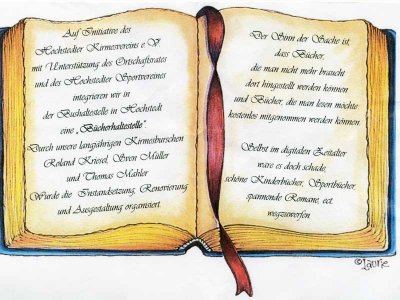 Auf Initiative des
Hochstedter Kirmesvereins e.V
mit Unterstützung des Ortschaftsrates
und des Hochstedter Sportvereines
integrieren wir in
der Bushaltestelle in Hochstedt
eine „Bücherhaltestelle“.
Durch unsere langjährigen Kirmesburschen
Roland Kriesel, Sven Müller
und Thomas Mahler
Wurde die Instandsetzung, Renovierung
und Ausgestaltung organisiert.
Der Sinn der Sache ist,
dass Bücher,
die man nicht mehr braucht
dort hingestellt werden können
und Bücher, die man lesen möchte
kostenlos mitgenommen werden können.
Selbst im digitalen Zeitalter
wäre es doch schade,
schöne Kinderbücher, Sportbücher,
spannende Romane, ect.
wegzuwerfen.
©Laurie